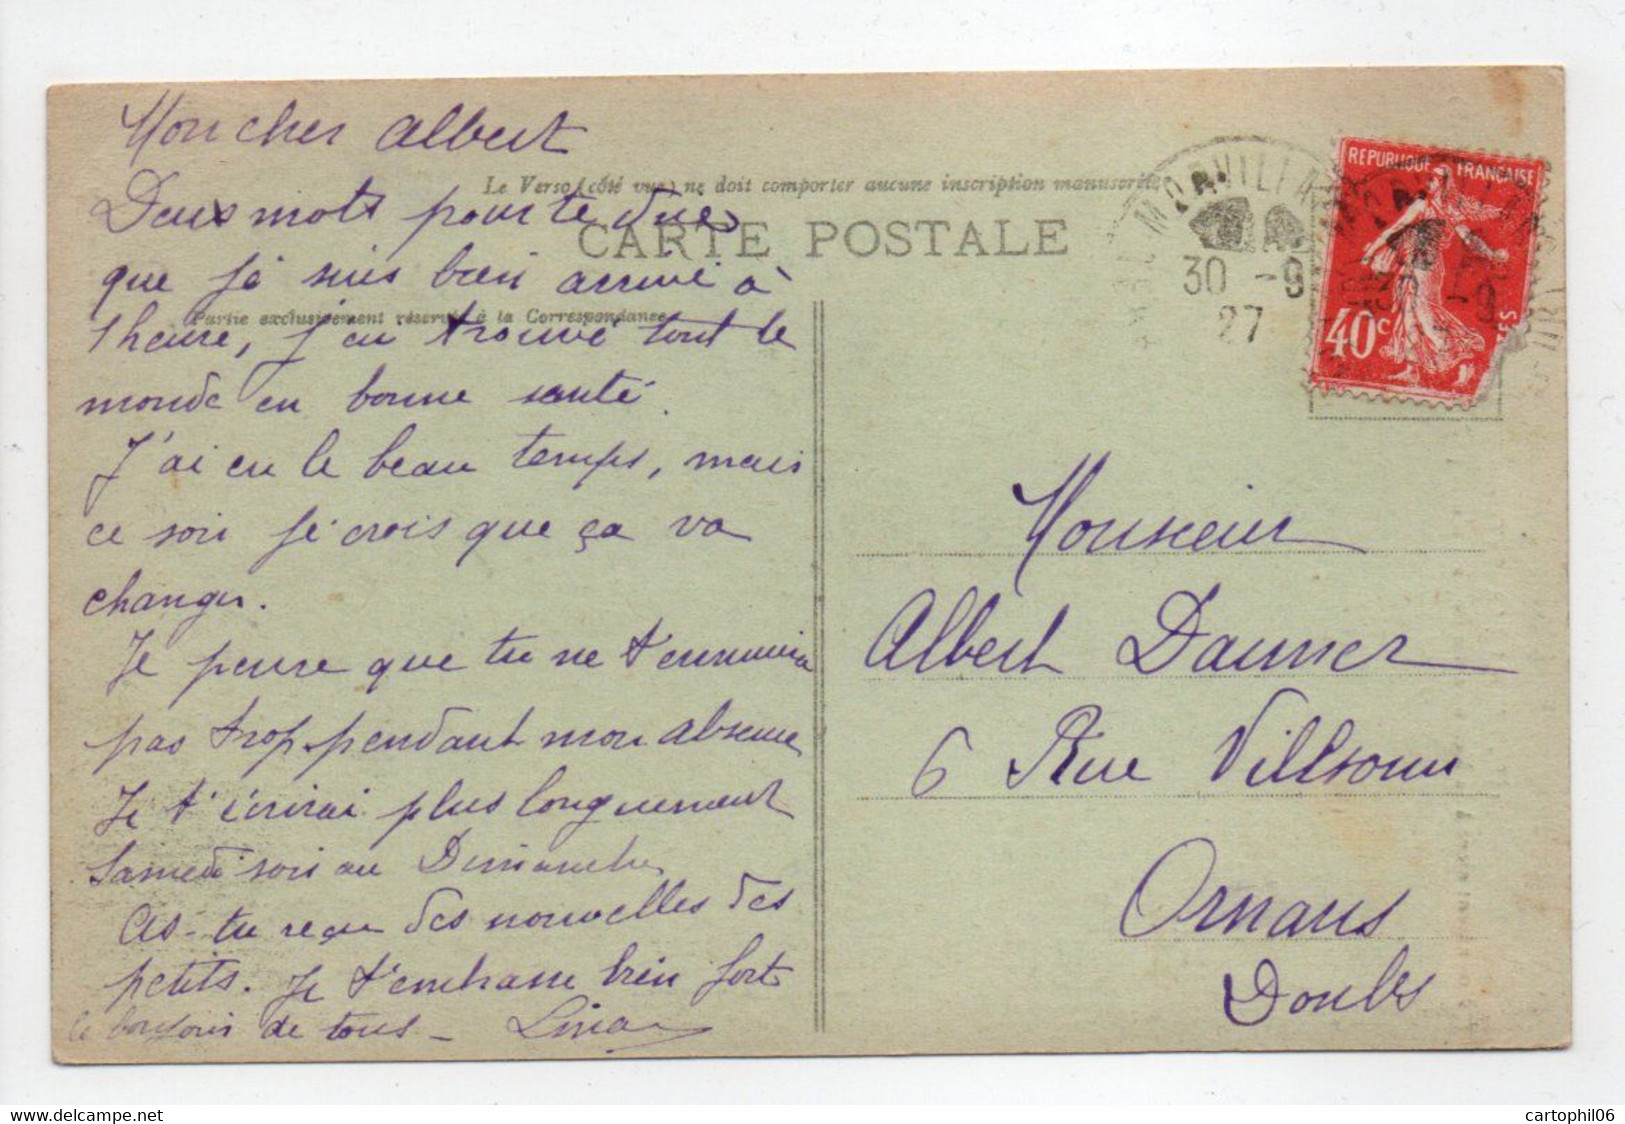 Mon cher Albert
Deux mots pour te dire
que je suis bien arrivé à
1 heure, j'ai trouvé tout le
monde en bonne santé.
J'ai eu le beau temps, mais
ce soir je crois que ça va
changer.
Je pense que tu ne t'ennuiera
pas trop pendant mon absence
Je t'écrirai plus longuement
Samedi soir ou Dimanche
As-tu reçu des nouvelles des
petits. Je t'embrasse bien fort
le bonjour de tous - Lina
Le Verso (côté vue) ne doit comporter aucune inscription manuscrite
CARTE POSTALE
Partie exclusivement réservée à la Correspondance
MORVILLARS
30 -9
27
REPUBLIQUE FRANÇAISE
40c
Monsieur
Albert Daumer
6 Rue Villsonn
Ornans
Doubs
delcampe.net
cartophil06